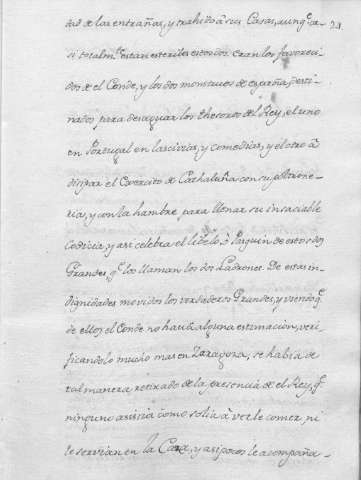 dad de las entrañas, y trahido à sus Casas, aunq.e ca- 23.
si totalm.te estan esteriles estos dos. eran los favoreci-
dos de el Conde, y los dos monstruos de españa, desti-
nados para desaguar los thesoros del Rey, el uno
en Portugal en lascivias, y comedias, y el otro à
disipar el Exercito de Cathaluña con su
y con la hambre para llenar su insaciable
Codicia, y asi celebra el libelo, ò Pasquin de estos dos
Grandes, q.e los llaman los dos Ladrones. De estas in-
dignidades movidos los verdaderos Grandes, y viendo q.e
de ellos el Conde no hacia alguna estimacion, veri-
ficandolo mucho mas en Zaragoza, se habia de
tal manera retirado de la presencia de el Rey, q.e
ninguno asistia como solia à verle comer, ni
le servian en la Caza, y asi pocos le acompaña-